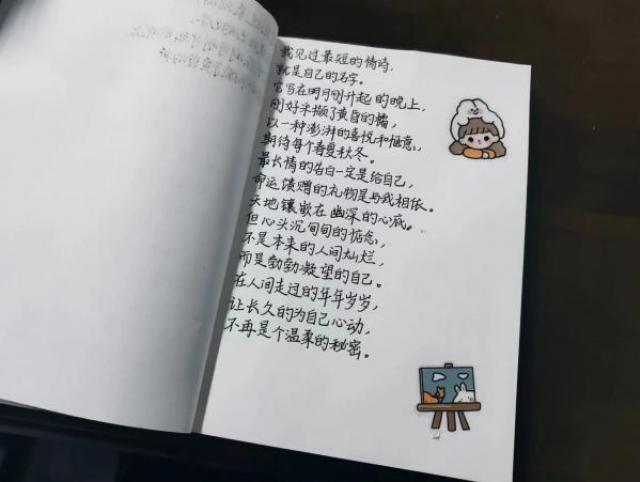 我见过最短的情诗，
就是自己的名字。
它写在明月刚升起的晚上，
刚好半撷了黄昏的橘，
以一种澎湃的喜悦和惬意，
期待每个春夏秋冬。
最长情的告白一定是给自己，
命运馈赠的礼物是与我相依。
天地镶嵌在幽深的心底。
但心头沉甸甸的惦念，
不是本来的人间灿烂，
而是勤勤凝望的自己。
在人间走过的年年岁岁，
让长久的为自己心动，
不再是个温柔的秘密。